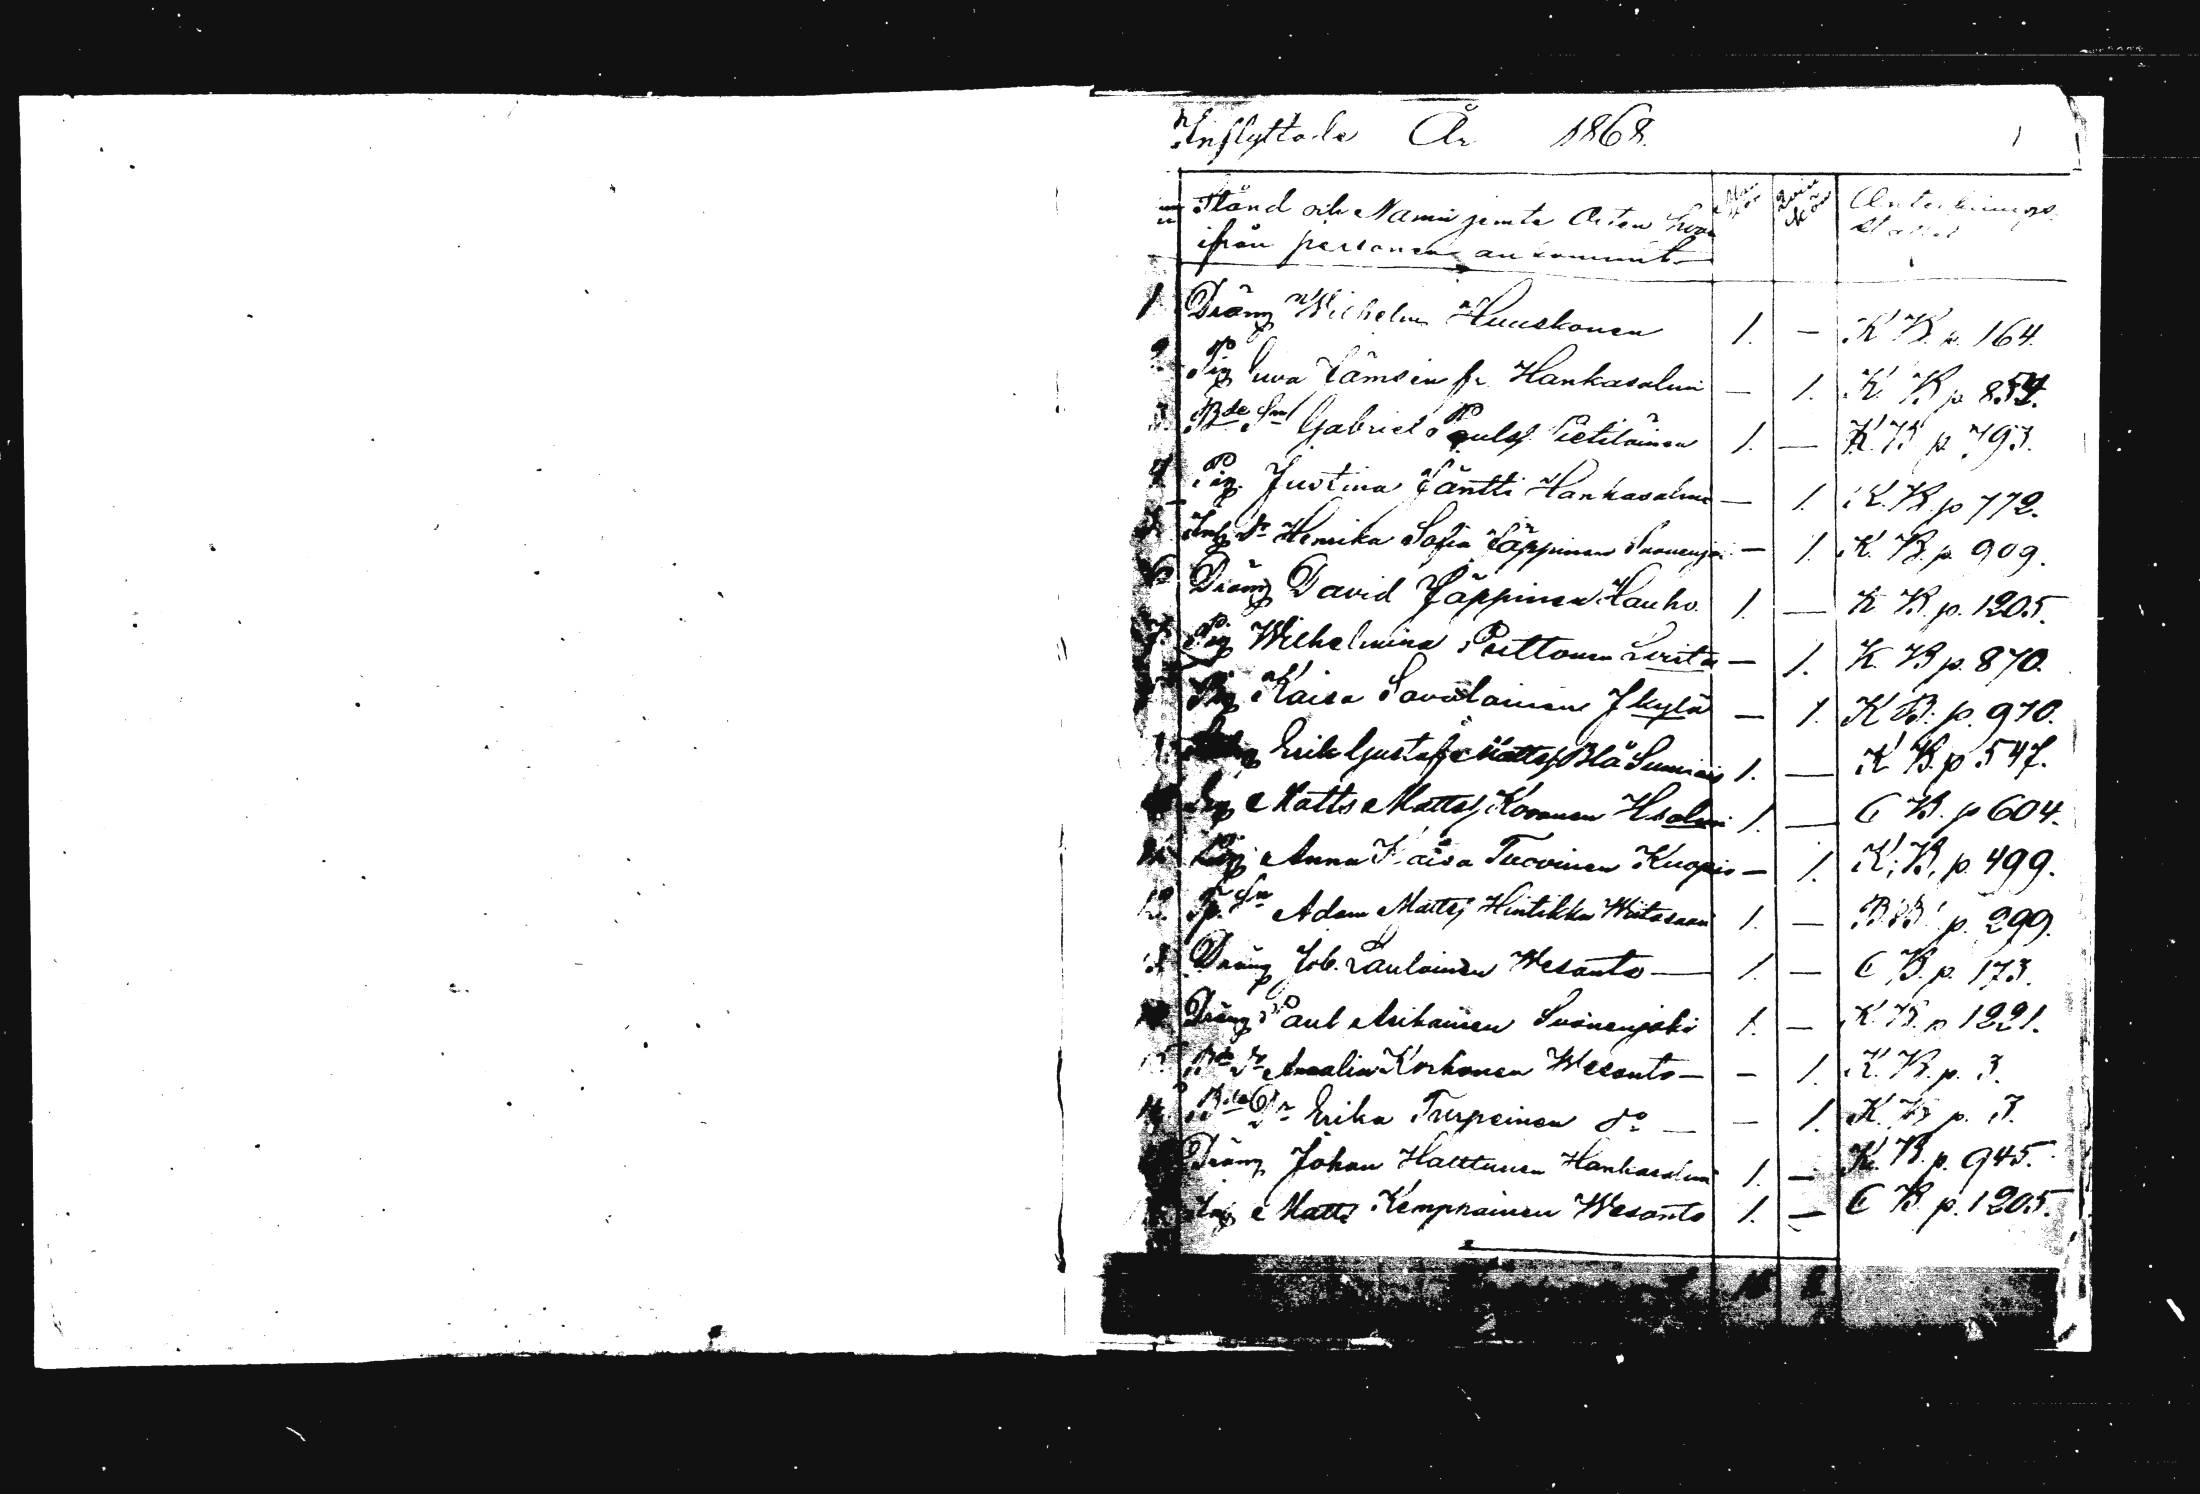 Inflyttade År 1868.
1
Stånd och Namn jemte Orten hvar Man kön Qvin kön Antecknings
ifrån personen ankommit
1 Dräng Wilhelm Huuskonen 1. — K B. p. 164.
2 Pig Eva Jämsén fr. Hankasalmi — 1. K. B. p 854.
3. Bde Sn Gabriel Paulsf Pietiläinen 1. — K. B p 793.
4 Pig. Justina Jäntti Hankasalmi — 1. K. B. p 772.
5 Inh Dr Henrika Sofia Jäppinen Suonenjoi — 1. K. B. p. 909.
6 Dräng David Jäppinen Hauho. 1. — K B. p. 1205.
7. Pig Wilhelmina Puttonen — 1. K. B p. 870.
Pig Kaisa Savolainen Jkylä — 1. K B. p. 970.
Erik Gustaf Mattsf Blå Sumiais 1. — K B. p 547.
Matts Mattsf Kononen Hsalmi 1. — C B. p 604.
11 Pig Anna Kaisa Tuovinen Kuopio — 1. K. B. p. 499.
12. Sn Adam Mattsf Hintikka Wiitasaari 1. — p. 299.
13 Dräng Job. Laulainen Wesanto — 1. — C B. p. 173.
Dräng Paul Asikainen Suonenjoki 1. — K. B. p 1221.
15 Bde Dr Amalia Korhonen Wesanto — — 1. K. B. p. 3.
16 Bde Dr Erika Turpeinen do — — 1. K. B p. 3.
Dräng Johan Halttunen Hankasalmi 1. — K. B. p. 945.
Inh Matts Kemppainen Wesanto 1. — C B. p. 1205.